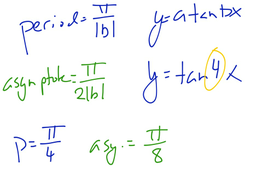 period = π/|b|
y = a tan bx
asymptote = π/2|b|
y = tan 4x
p = π/4
asy. = π/8